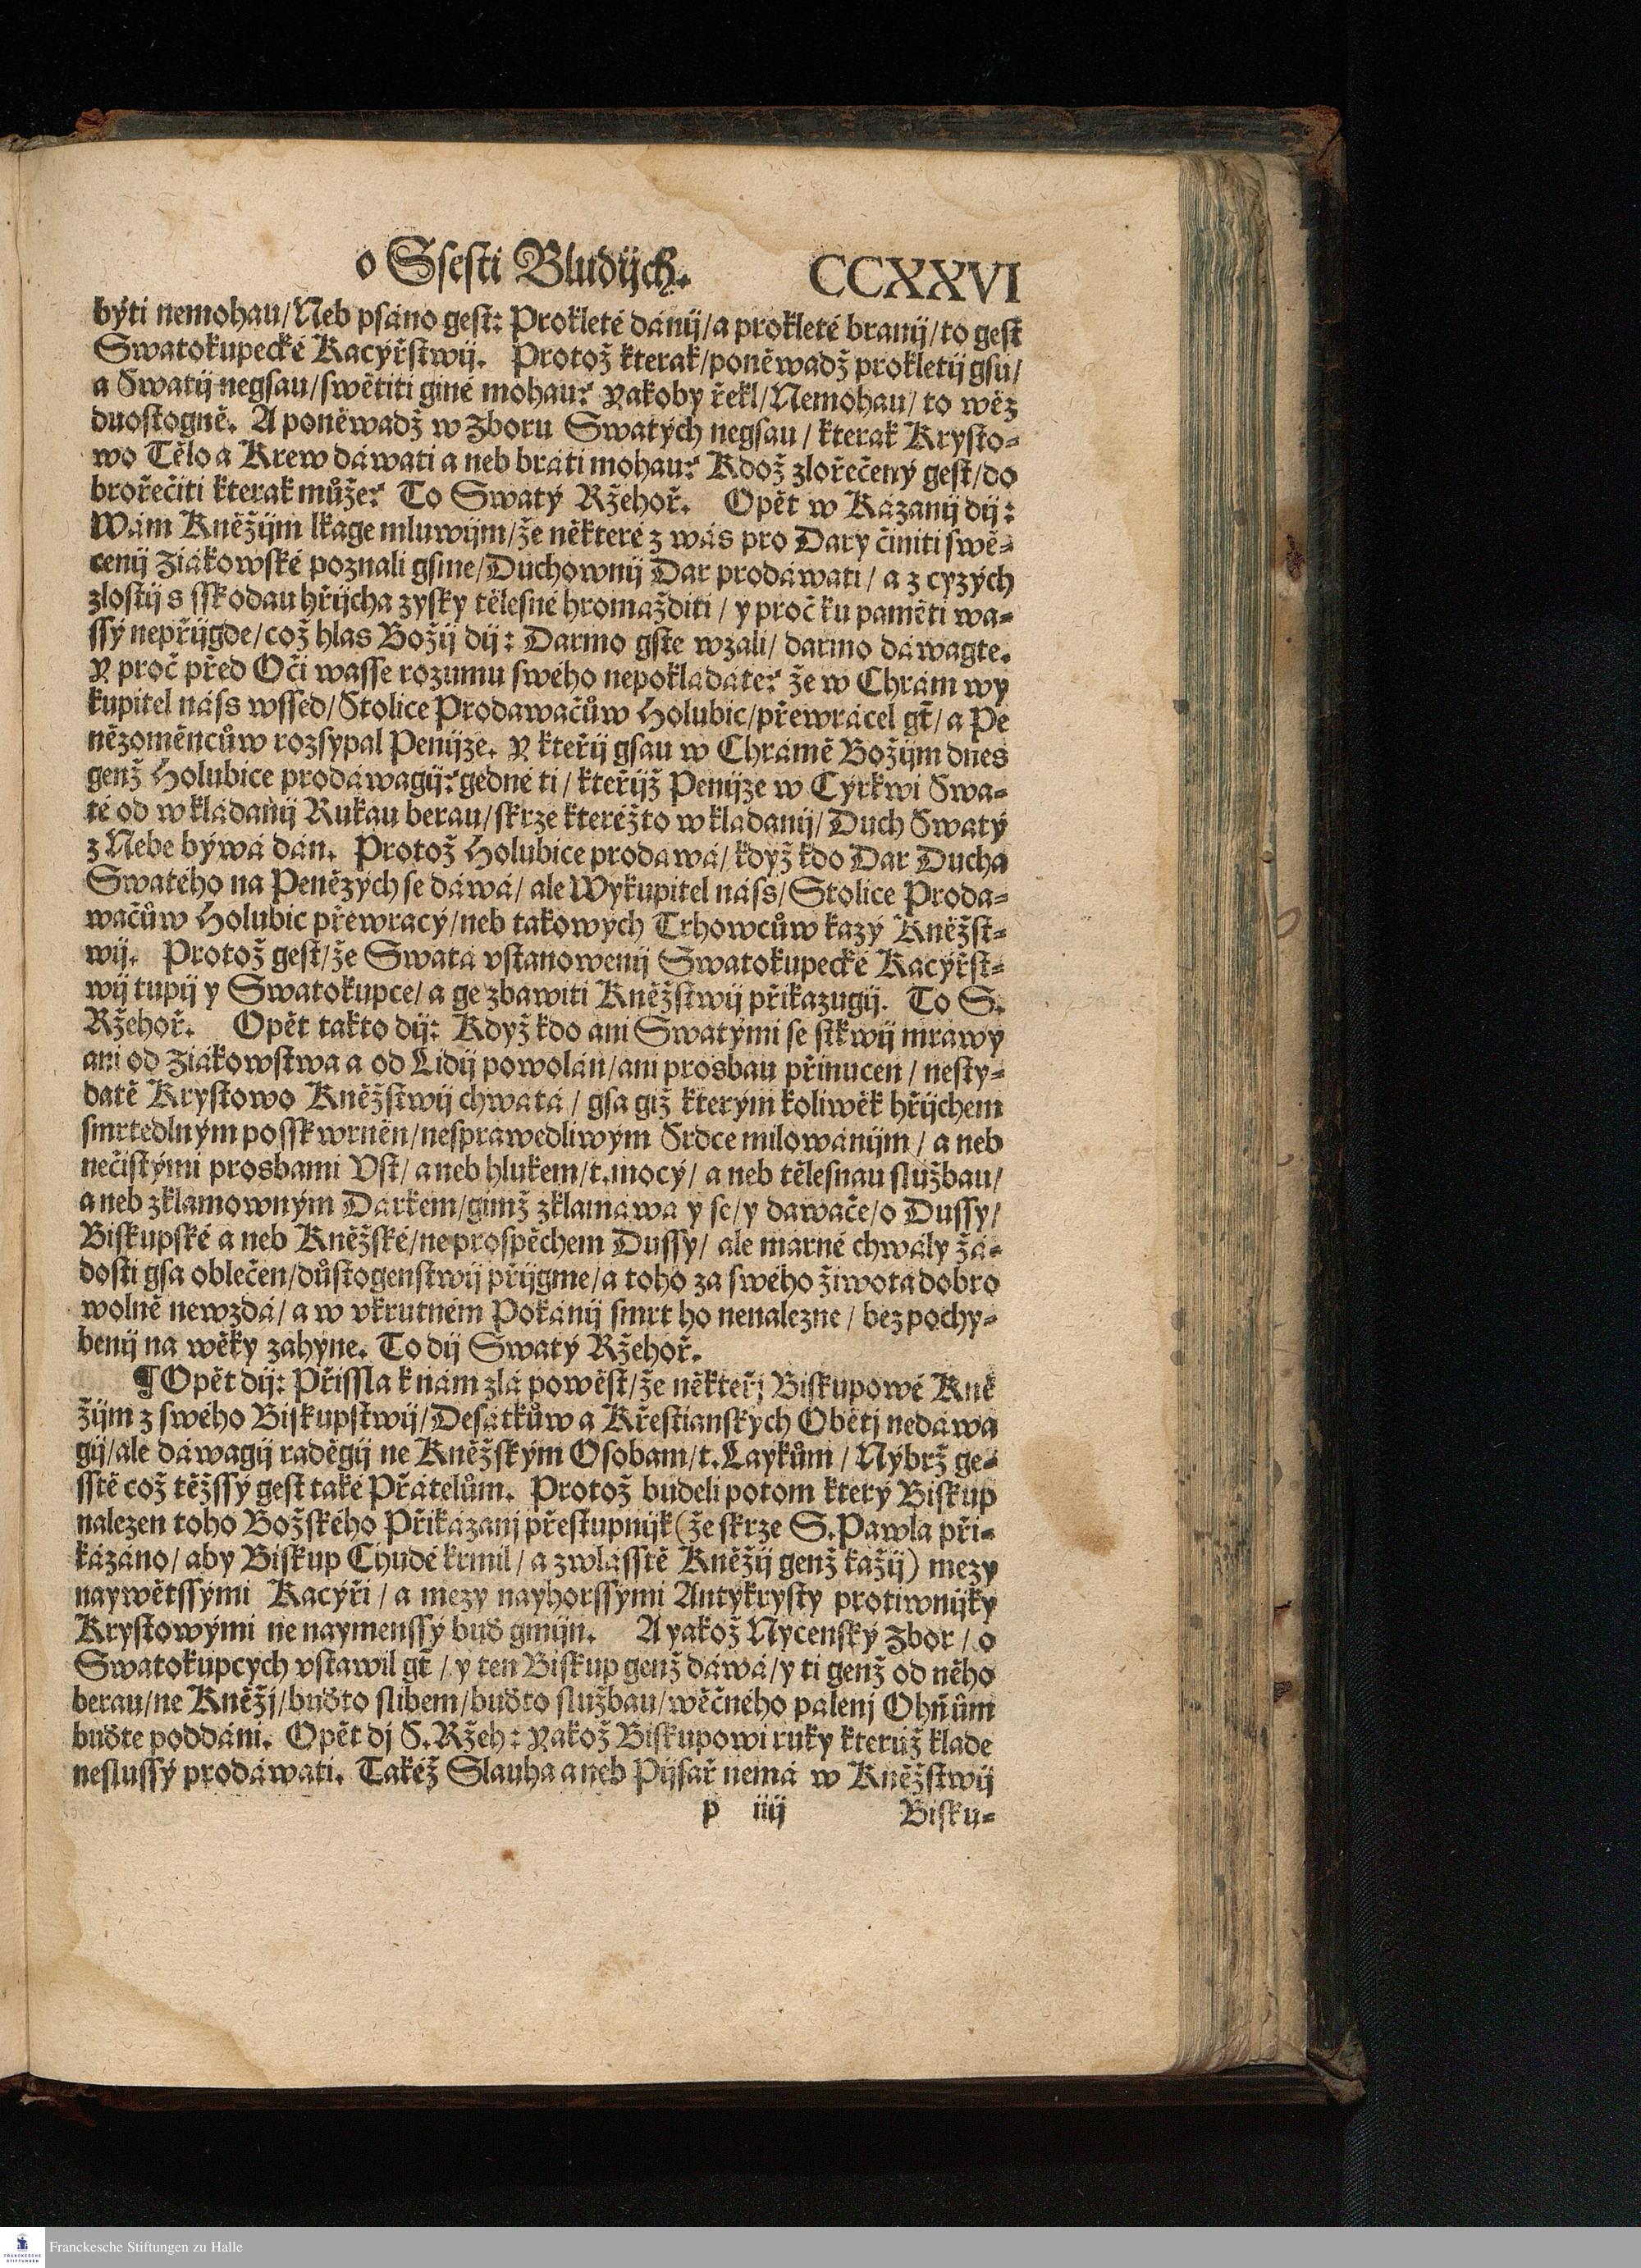 o Ssesti Bludijch. CCXXVI
býti nemohau/Neb psáno gest: Prokleté dánij/a prokleté branij/to gest
Swatokupecké Kacýřstwij. Protož kterak/poněwadž prokletij gsú/
a Swatij negsau/swětiti giné mohau? Yakoby řekl/Nemohau/ to wěz
duostogně. A poněwadž w Zboru Swatých negsau / kterak Krysto-
wo Tělo a Krew dáwati a neb bráti mohau? Kdož zlořečený gest/do
brořečiti kterak může? To Swatý Ržehoř. Opět w Kázanij dij:
Wám Kněžijm lkage mluwijm/že některé z wás pro Dary činiti swě-
cenij Žiákowské poznali gsme/Duchownij Dar prodáwati/ a z cyzých
zlostij s sskodau hřijcha zysky tělesné hromažditi / y proč ku paměti wa-
ssý nepřijgde/což hlas Božij dij: Darmo gste wzali/ darmo dáwagte.
Y proč před Oči wasse rozumu swého nepokládáte? že w Chrám wy
kupitel náss wssed/Stolice Prodawačůw Holubic/přewrácel gt̄/ a Pe
nězoměncůw rozsypal Penijze. Y kteřij gsau w Chrámě Božijm dnes
genž Holubice prodáwagij? gedné ti / kteřijž Penijze w Cýrkwi Swa-
té od wkládánij Rukau berau/skrze kteréžto wkladanij/ Duch Swatý
z Nebe býwá dán. Protož Holubice prodawá/ když kdo Dar Ducha
Swatého na Penězých se dáwá/ ale Wykupitel náss/Stolice Proda-
wačůw Holubic přewracý/neb takowých Trhowcůw kazý Kněžst-
wij. Protož gest/že Swatá vstanowenij Swatokupecké Kacýřst-
wij tupij y Swatokupce/ a ge zbawiti Kněžstwij přikazugij. To S.
Ržehoř. Opět takto dij: Když kdo ani Swatými se stkwij mrawy
ani od Žiákowstwa a od Lidij powolán/ani prosbau přinucen / nesty-
datě Krystowo Kněžstwij chwatá / gsa giž kterým koliwěk hřijchem
smrtedlným possкwrněn/nesprawedliwým Srdce milowánijm / a neb
nečistými prosbami Vst/ a neb hlukem/t.mocý/ a neb tělesnau službau/
a neb zklamowným Darkem/gimž zklamáwa y se/y dawače/o Dussy/
Biskupské a neb Kněžské/ne prospěchem Dussy/ ale marné chwály žá-
dosti gsa oblečen/důstogenstwij přijgme/a toho za swého života dobro
wolně newzdá/ a w vkrutném Pokánij smrt ho nenalezne / bez pochy-
benij na wěky zahyne. To dij Swatý Ržehoř.
¶ Opět dij: Přissla k nám zlá powěst/že někteřj Biskupowé Kně
žijm z swého Biskupstwij/Desátkůw a Křestianských Obětj nedáwa
gij/ale dáwagij raděgij ne Kněžským Osobam/t.Laykům / Nýbrž ge-
sstě což těžssý gest také Přátelům. Protož budeli potom který Biskup
nalezen toho Božského Přikázanj přestupnijk (že skrze S.Pawla při-
kázáno/ aby Biskup Chudé krmil/ a zwlásstě Kněžij genž kažij) mezy
naywětssými Kacýři / a mezy nayhorssými Antykrysty protiwnijky
Krystowými ne naymenssý buď gmijn. A yakož Nycenský Zbor / o
Swatokupcých vstawil gt̄ / y ten Biskup genž dáwá/y ti genž od něho
berau/ne Kněžj/buďto slibem/buďto službau/wěčného palenj Ohňům
buďte poddáni. Opět dj S.Ržeh: Yakož Biskupowi ruky kterúž klade
neslussý prodáwati. Takéž Slauha a neb Pijsař nemá w Kněžstwij
p iiij Bisku-
Franckesche Stiftungen zu Halle
FRANCKESCHE
STIFTUNGEN